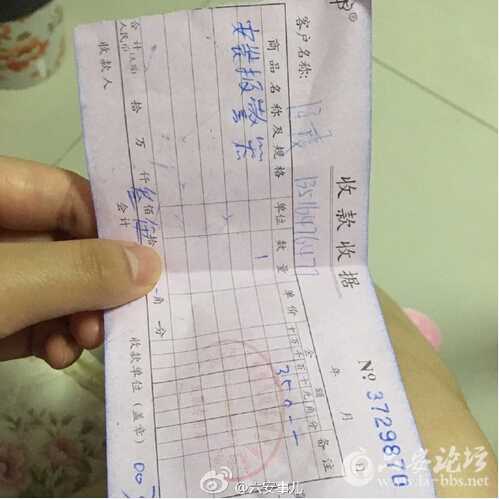 收款收据
№ 3729870
年 月
客户名称:
商品名称及规格 单位 数量 单价 金额 备注
十万千百十元角分
安装报警器 1 350--
合计
人民币(大写) 拾 万 仟 叁 佰 伍 拾 角 分
收款人 会计 收款单位(盖章)
@六安事儿
六安论坛
la-bbs.net